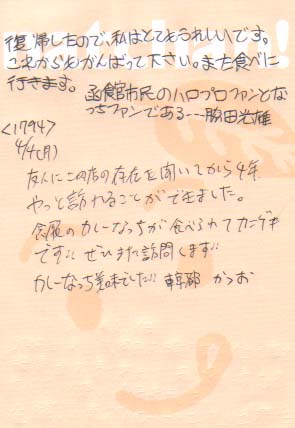 復帰したので、私はとてもうれしいです。
これからもがんばって下さい。また食べに
行きます。
函館市民のハロプロファンとな
っちファンである---脇田光雄
<1794>
4/4(月)
友人にこの店の存在を聞いてから4年
やっと訪れることができました。
念願のカレーなっちが食べられてカンゲキ
です!! ぜひまた訪問します!!
カレーなっち美味でした!! かつお